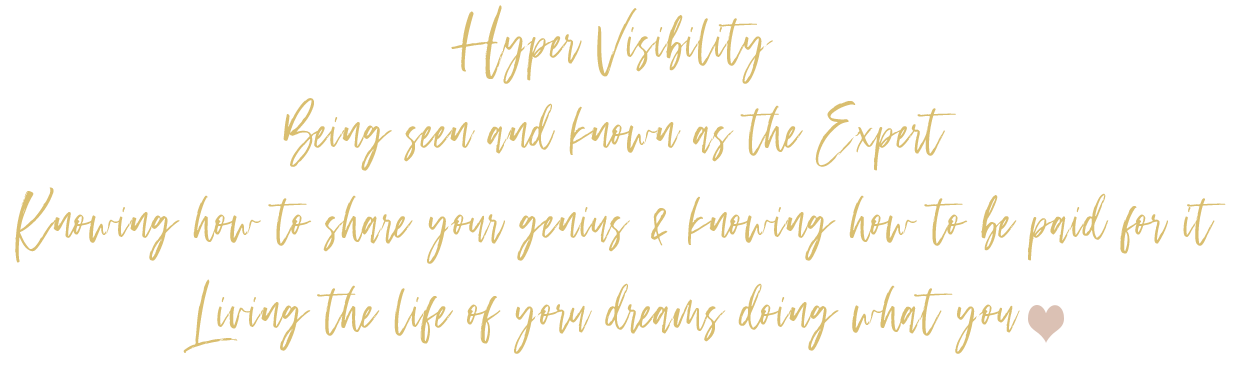 Hyper Visibility
Being seen and known as the Expert
Knowing how to share your genius & knowing how to be paid for it
Living the life of yoru dreams doing what you